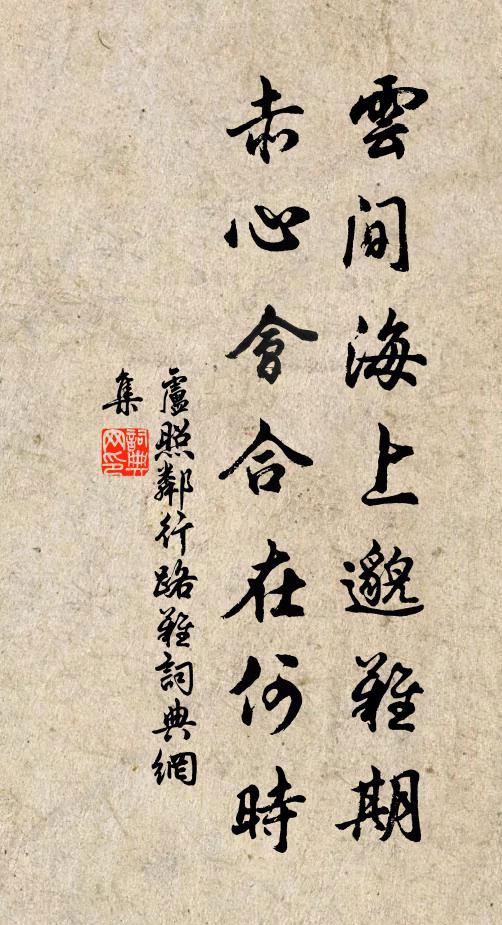 雲間海上邈難期
赤心會合在何時
盧照鄰行路難詞典網
集
詞典网印